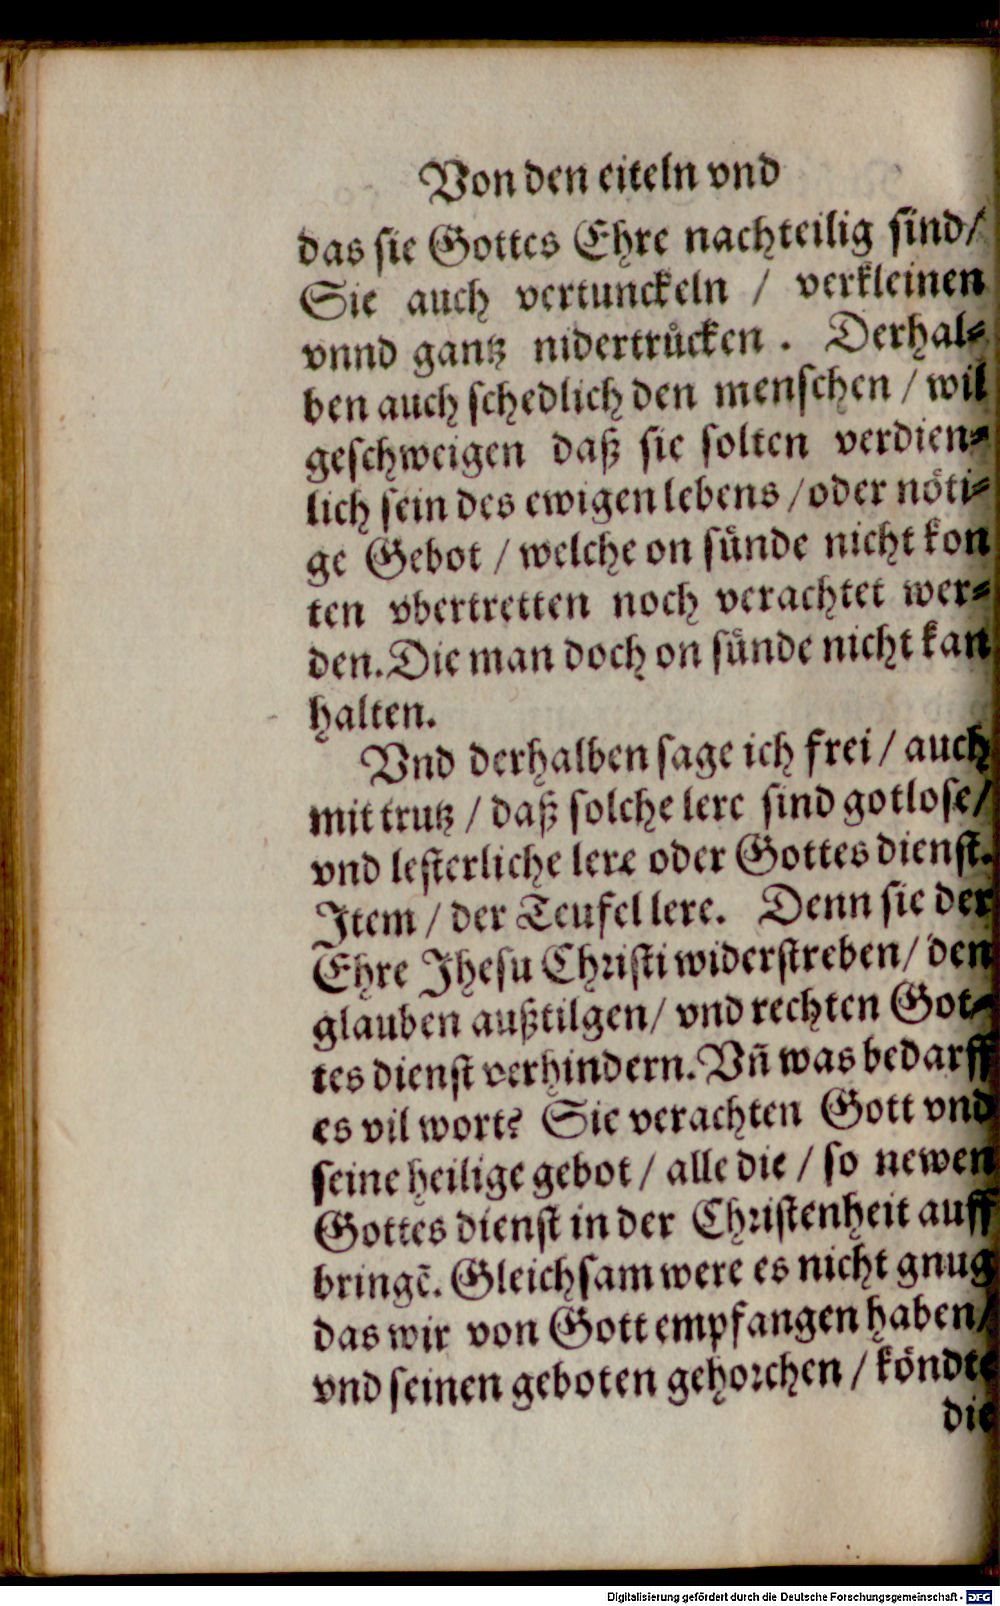 Von den eiteln vnd
das sie Gottes Ehre nachteilig sind/
Sie auch vertunckeln / verkleinen
vnnd gantz nidertruͤcken . Derhal⸗
ben auch schedlich den menschen / wil
geschweigen daß sie solten verdien⸗
lich sein des ewigen lebens / oder noͤti⸗
ge Gebot / welche on suͤnde nicht kon
ten vbertretten noch verachtet wer⸗
den. Die man doch on suͤnde nicht kan
halten.
Vnd derhalben sage ich frei / auch
mit trutz / daß solche lere sind gotlose/
vnd lesterliche lere oder Gottes dienst.
Item / der Teufel lere. Denn sie der
Ehre Jhesu Christi widerstreben/ den
glauben außtilgen/ vnd rechten Got⸗
tes dienst verhindern. Vñ was bedarff
es vil wort? Sie verachten Gott vnd
seine heilige gebot / alle die / so newen
Gottes dienst in der Christenheit auff
bringē. Gleichsam were es nicht gnug
das wir von Gott empfangen haben/
vnd seinen geboten gehorchen / koͤndte
die
Digitalisierung gefördert durch die Deutsche Forschungsgemeinschaft - DFG